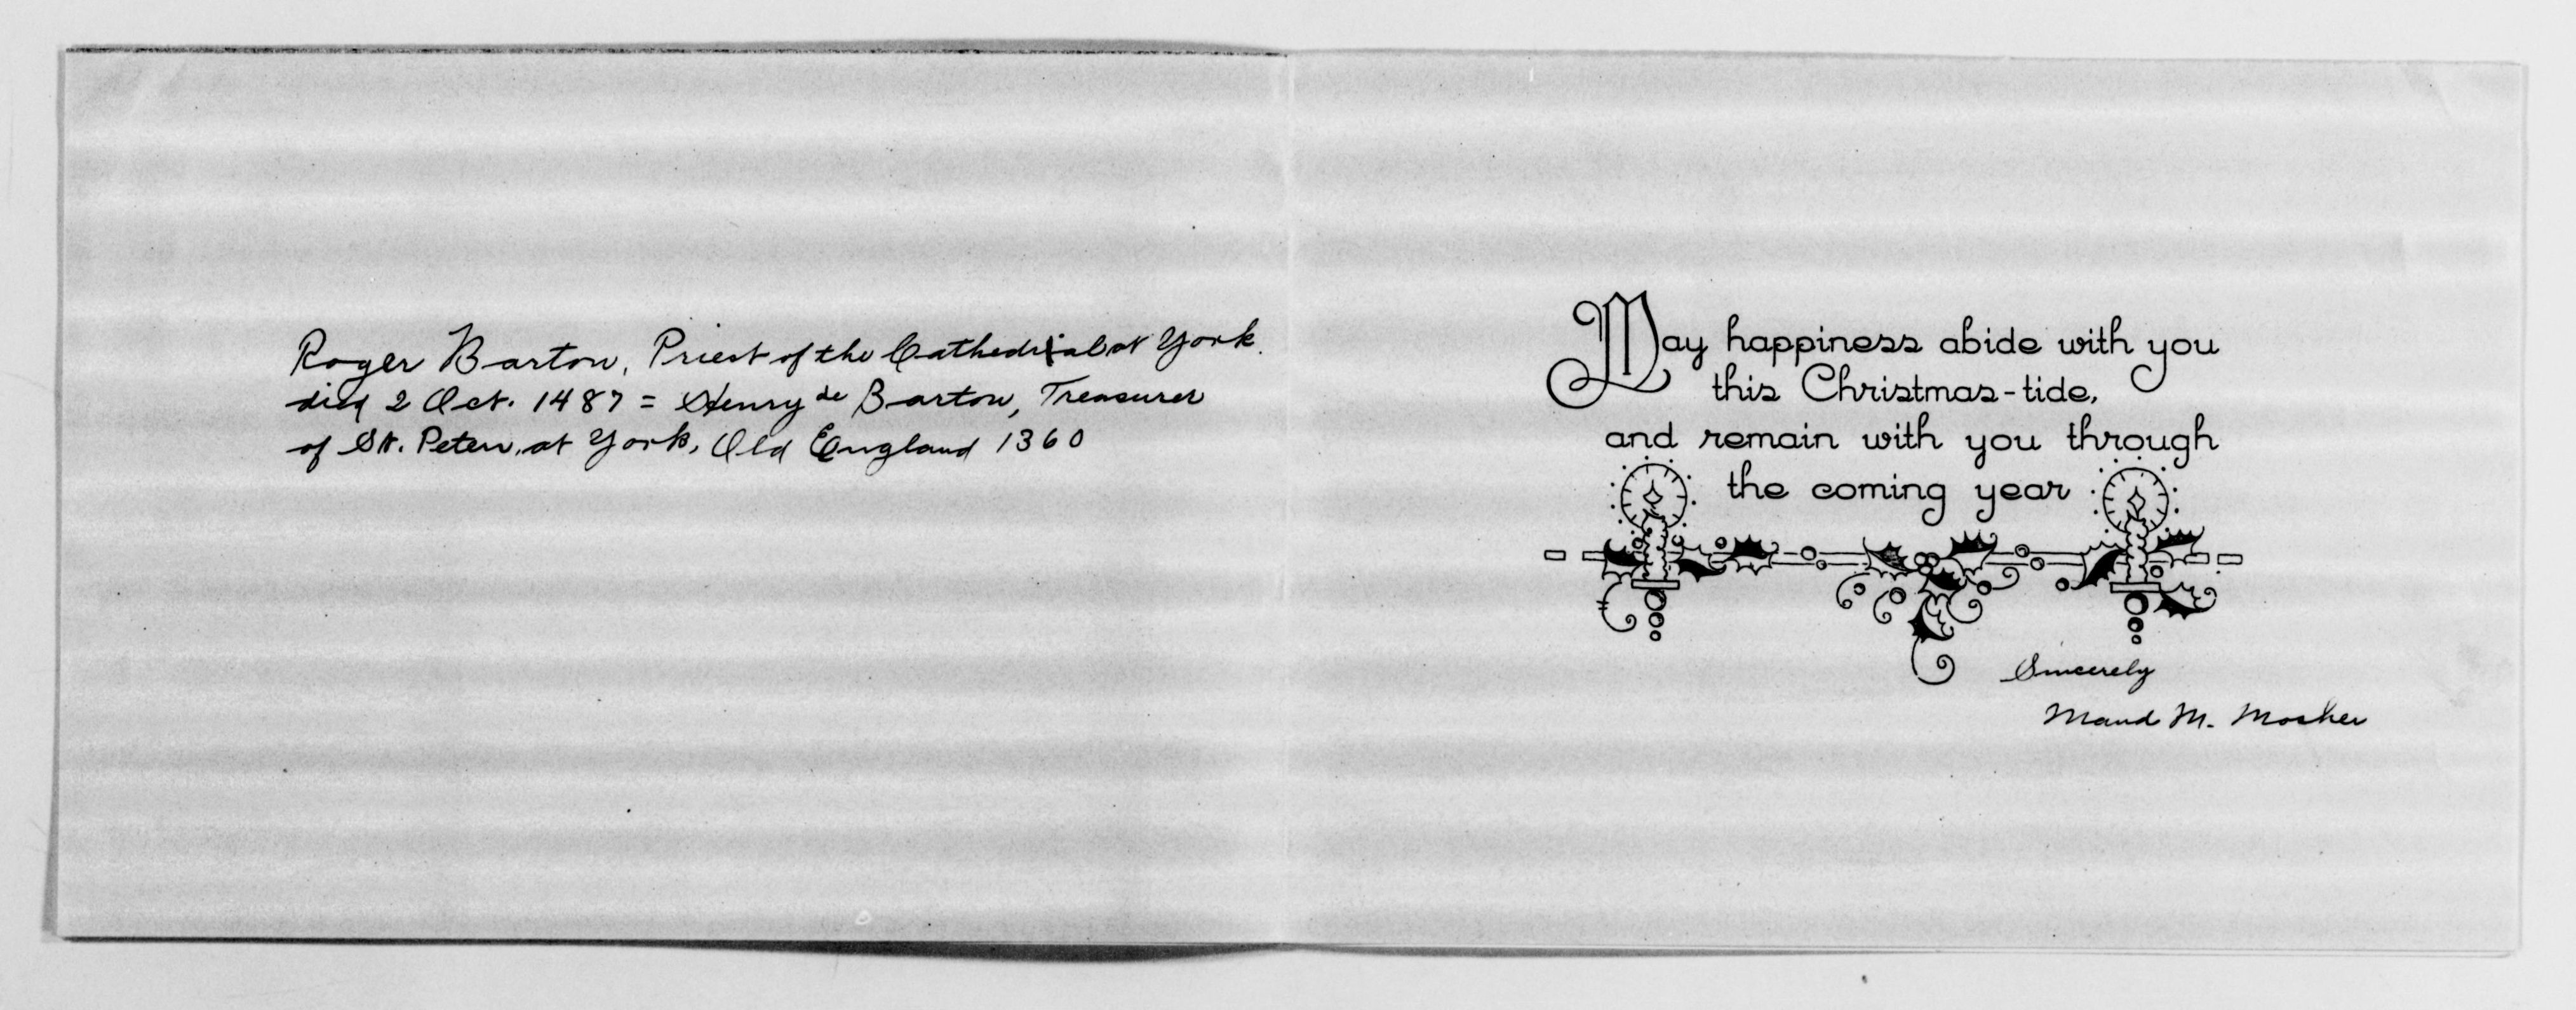 Roger Barton, Priest of the Cathedral at York.
died 2 Oct. 1487 = Henry de Barton, Treasurer
of St. Peter, at York, Old England 1360
May happiness abide with you
this Christmas-tide,
and remain with you through
the coming year
Sincerely
Maud M. Mosher